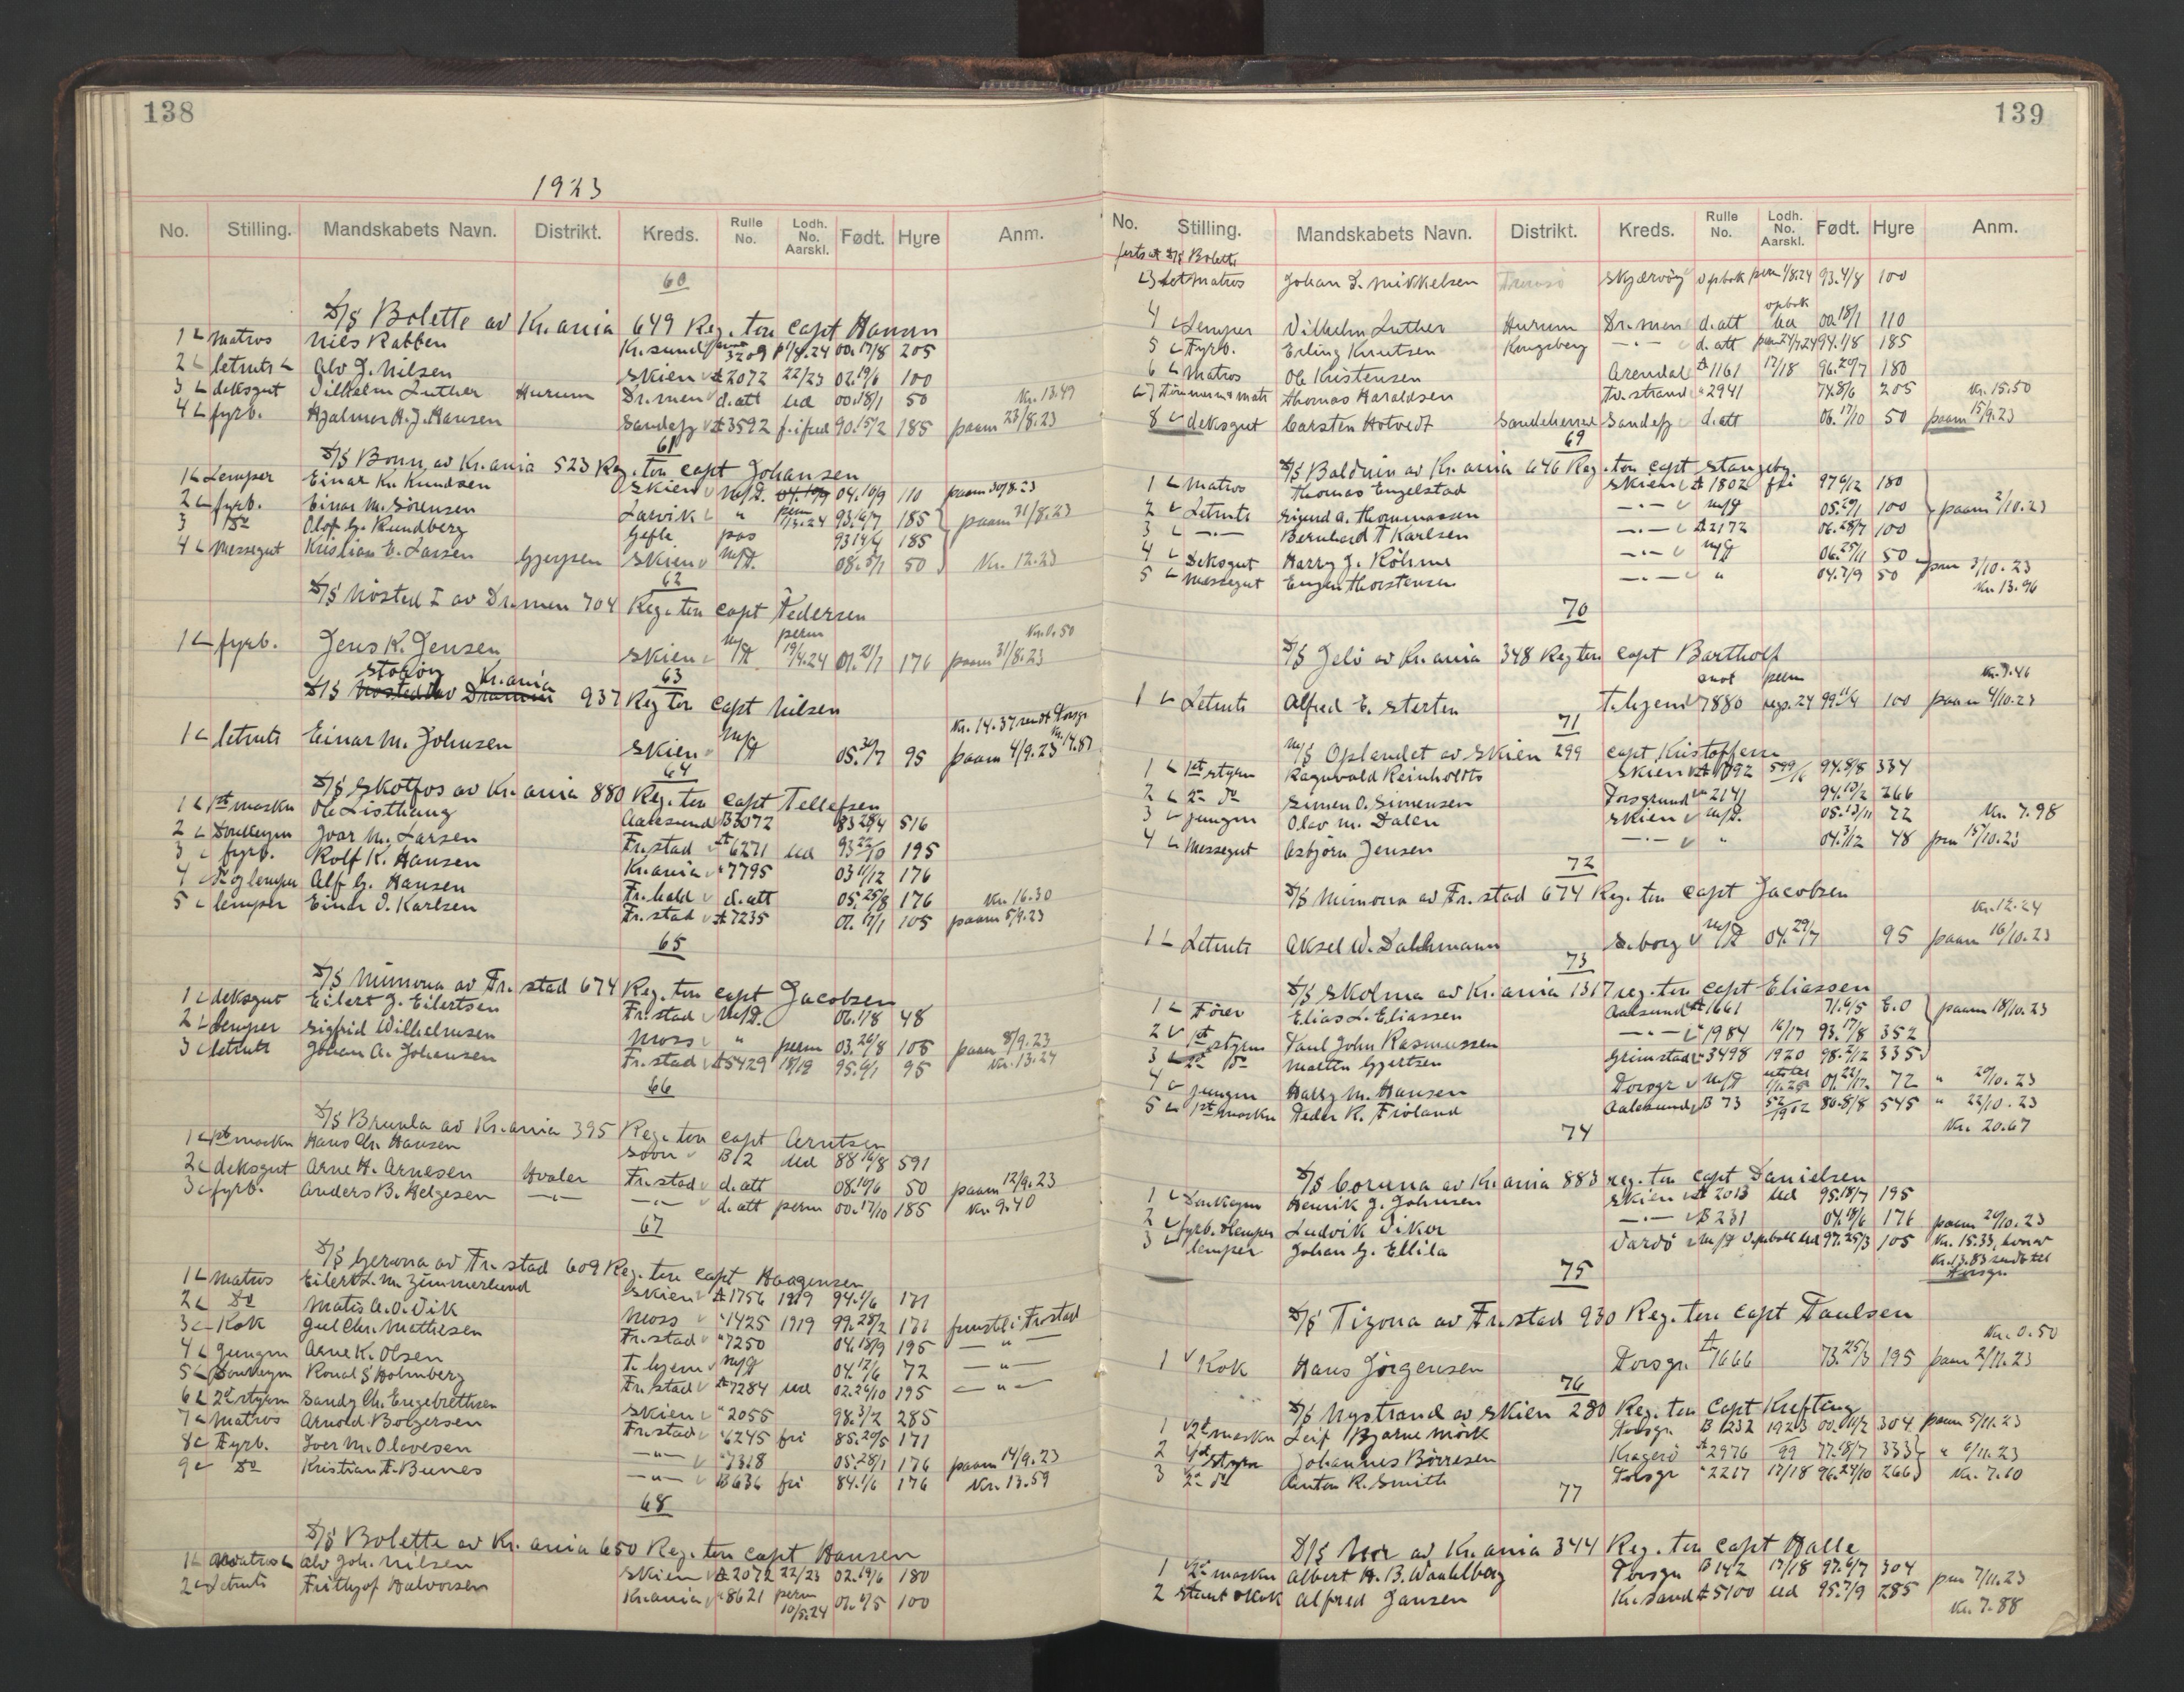 138
1923
No. Stilling. Mandskabets Navn. Distrikt. Kreds. Rulle No. Lodh. No. Aarskl. Født. Hyre Anm.
60
D/S Bolette av Kr.ania 649 Reg. ton Capt Hansen
1 Matros Nils Rabben Kr.sund 3209 1/4.24 00.17/8 205
2 letmts Alv J. Nilsen Skien A 2072 22/23 02.19/6 100
3 deksgut Vilhelm Luther Hurum Dr.men d.att Ud 00.18/1 50 Kr. 13.49
4 fyrb. Hjalmar H. J. Hansen Sandefj A 3592 f.ifred 90.15/2 185 paam 23/8.23
61
D/S Bonn av Kr.ania 523 Reg. ton Capt Johansen
1 Lemper Einar Kr. Knudsen Skien M/P. 04.10/9 110 paam 30/8.23
2 fyrb. Einar M. Sörensen Larvik " perm 1/3.24 93.16/7 185 paam 31/8.23
3 Do Olof G. Rundberg Gefle pas 93 14/4 185
4 Messegut Kristian E. Larsen Gjerpen Skien M/P. 08.5/1 50 Kr. 12.23
62
D/S Nösted I av Dr.men 704 Reg. ton Capt Pedersen
1 fyrb. Jens K. Jensen Skien M/P perm 19/4.24 01.21/1 176 paam 31/8.23 Kr. 0.50
63
D/S Stoböy Kr.ania 937 Reg ton Capt Nilsen
Kr. 14.37 sendt Porsgr
1 letmts Einar M. Johnsen Skien M/P 05.30/7 95 paam 4/9.23 Kr. 14.87
64
D/S Skotfos av Kr.ania 880 Reg. ton Capt Tellefsen
1 1st maskn Ole Listhaug Aalesund B 3072 83 28/4 516
2 Donkeym Ivar M. Larsen Fr.stad A 6271 Ud 93 22/10 195
3 fyrb. Rolf K. Hansen Kr.ania " 7795 03 11/12 176
4 Do og lemper Alf G. Hansen Fr.hald d.att 05.25/8 176 Kr. 16.30
5 lemper Einar O. Karlsen Fr.stad A 7235 02.17/1 105 paam 5/9.23
65
D/S Mimona av Fr.stad 674 Reg. ton Capt Jacobsen
1 deksgut Eilert J. Eilertsen Fr.stad M/P. 06.1/8 48
2 Lemper Sigfrid Wilhelmsen Moss " perm 03.26/8 105 paam 8/9.23
3 letmts Johan A. Johansen Fr.stad A 5429 18/19 95.6/1 95 Kr. 13.24
66
D/S Brunla av Kr.ania 395 Reg. ton Capt Arntsen
1 1st maskn Hans Chr. Hansen Soon B/2 Ud 88 16/8 591
2 deksgut Arne H. Arnesen Hvaler Fr.stad d.att 08.10/6 50 paam 12/9.23
3 fyrb. Anders B. Helgesen —"— —"— d.att perm 00.17/10 185 Kr. 9.40
67
D/S Gerona av Fr.stad 609 Reg. ton Capt Haagensen
1 Matros Eilert L. M. Zimmerlund Skien A 1756 1919 94.1/6 171
2 Do Matis A. O. Vik Moss " 1425 1919 99.28/2 171 funstl i Fr.stad
3 Kok Juel Chr. Mathiesen Fr.stad " 7250 04.18/9 195 — " —
4 Jungm Arne K. Olsen T.hjem M/P 04.12/6 72 — " —
5 Donkeym Ronal S. Holmberg Fr.stad A 7284 Ud 02.26/10 195 — " —
6 2d styrm Sandy Chr. Engebrethsen Skien " 2055 98.3/2 285
7 Matros Arnold Borgersen Fr.stad " 6245 fri 85.20/5 171
8 Fyrb. Iver M. Olavesen —"— " 7318 05.28/1 176 paam 14/9.23
9 Do Kristian A. Bunes —"— B 636 fri 84.1/6 176 Kr. 13.59
68
D/S Bolette av Kr.ania 650 Reg. ton Capt Hansen
1 Matros Alv Joh. Nilsen Skien A 2072 22/23 02.19/6 180
2 Letmts Frithjof Halvorsen Kr.ania " 8621 perm 10/5.24 01.6/5 100
139
No. Stilling. Mandskabets Navn. Distrikt. Kreds. Rulle No. Lodh. No. Aarskl. Født. Hyre Anm.
forts at D/S Bolette
3 Letmatros Johan I. Mikkelsen Tromsö Skjærvöy Opbok perm 1/8.24 93.4/8 100
4 Lemper Vilhelm Luther Hurum Dr.men d.att opbok Ud 00.18/1 110
5 Fyrb. Erling Knutsen Kongsberg —"— d.att perm 24/4.24 94.1/8 185
6 Matros Ole Kristensen Arendal A 1161 17/18 96.20/7 180
7 Tömmerm & mats Thomas Haraldsen Tv.strand " 2941 74.8/6 205 Kr. 15.50
8 deksgut Carsten Hotvedt Sandeherred Sandefj d.att 06.17/10 50 paam 15/9.23
69
D/S Balduin av Kr.ania 646 Reg. ton Capt Stangeby.
1 Matros Thomas Engelstad Skien A 1802 fri 97 6/12 180
2 Letmts Sigurd A. Thommassen —"— M/P 05.29/1 100 paam 2/10.23
3 —"— Bernhard A Karlsen —"— A 2172 06.28/7 100
4 Deksgut Harry J. Röhme —"— M/P 06.25/11 50 pam 3/10.23
5 Messegut Eugen Thorstensen —"— " 04.7/9 50 Kr. 13.96
70
D/S Jelö av Kr.ania 348 Reg ton Capt Bartholf
1 Letmts Alfred E. Sterten T.hjem 7880 perm 24 99 11/4 100 paam 4/10.23
71
M/S Oplendet av Skien 299 Capt Kristoffersen
1 1st styrm Ragnvald Reinholdts Skien A 1092 94.8/8 334
2 2n Do Simen O. Simensen Porsgrund " 2141 94.13/2 266
3 jungm Olav M. Dalen Skien M/P. 05.13/11 72 Kr. 7.98
4 Messegut Asbjörn Jensen —"— " 04.3/12 48 pm 15/10.23
72
D/S Mimona av Fr.stad 674 Reg. ton Capt Jacobsen
Kr. 12.24
1 Letmts Aksel W. Dahlmann S.borg M/P 04.29/7 95 paam 16/10.23
73
D/S Skolma av Kr.ania 1317 reg. ton Capt Eliassen
1 Förer Elias L. Eliassen Aalesund A 1661 71.6/5 E.O paam 18/10.23
2 1st styrm Paul John Rasmussen —"— " 1984 16/17 93.17/8 352
3 2n Do Martin Gjertsen Grimstad " 3498 1920 98.2/12 335
4 jungm Harry M. Hansen Porsgr M/P 1/1.25 07.22/12 72 " 20/10.23
5 1st maskn Peder K. Fröland Aalesund B 73 52/1912 80.8/8 545 " 22/10.23
Kr. 20.67
74
D/S Coruna av Kr.ania 883 reg. ton Capt Danielsen
1 Donkeym Henrik J. Johnsen Skien A 2013 Ud 95.18/7 195
2 fyrb. & lemper Ludvik Viker —"— B 231 04.18/6 176 paam 26/10.23
3 lemper Johan G. Ellila Vardö M/P Opboll Ud 97.25/3 105 Kr. 15.33, hvorav
Kr. 13.83 sendt til Porsgr.
75
D/S Tizona av Fr.stad 930 Reg. ton Capt Paulsen
Kr. 0.50
1 Kok Hans Jörgensen Porsgr. A 1666 73.25/3 195 paam 2/11.23
76
D/S Nystrand av Skien 280 Reg. ton Capt Knefting
1 2d maskn Leif Bjarne Mörk Porsgr B 1232 1923 00.11/2 304 paam 5/11.23
2 1st styrm Johannes Börresen Kragerö A 2976 /99 77.18/7 333 " 6/11.23
3 2n Do Anton R. Smith Porsgr " 2217 17/18 96.24/10 266 Kr. 7.10
77
D/S Nor av Kr.ania 344 Reg. ton Capt Halle
1 2d maskn Albert H. B. Waahlberg Porsgr B 142 17/18 97.6/7 304 pam 7/11.23
2 Stuert & Kok Alfred Jansen Kr.sand A 5100 Ud 95.7/9 285 Kr. 7.88